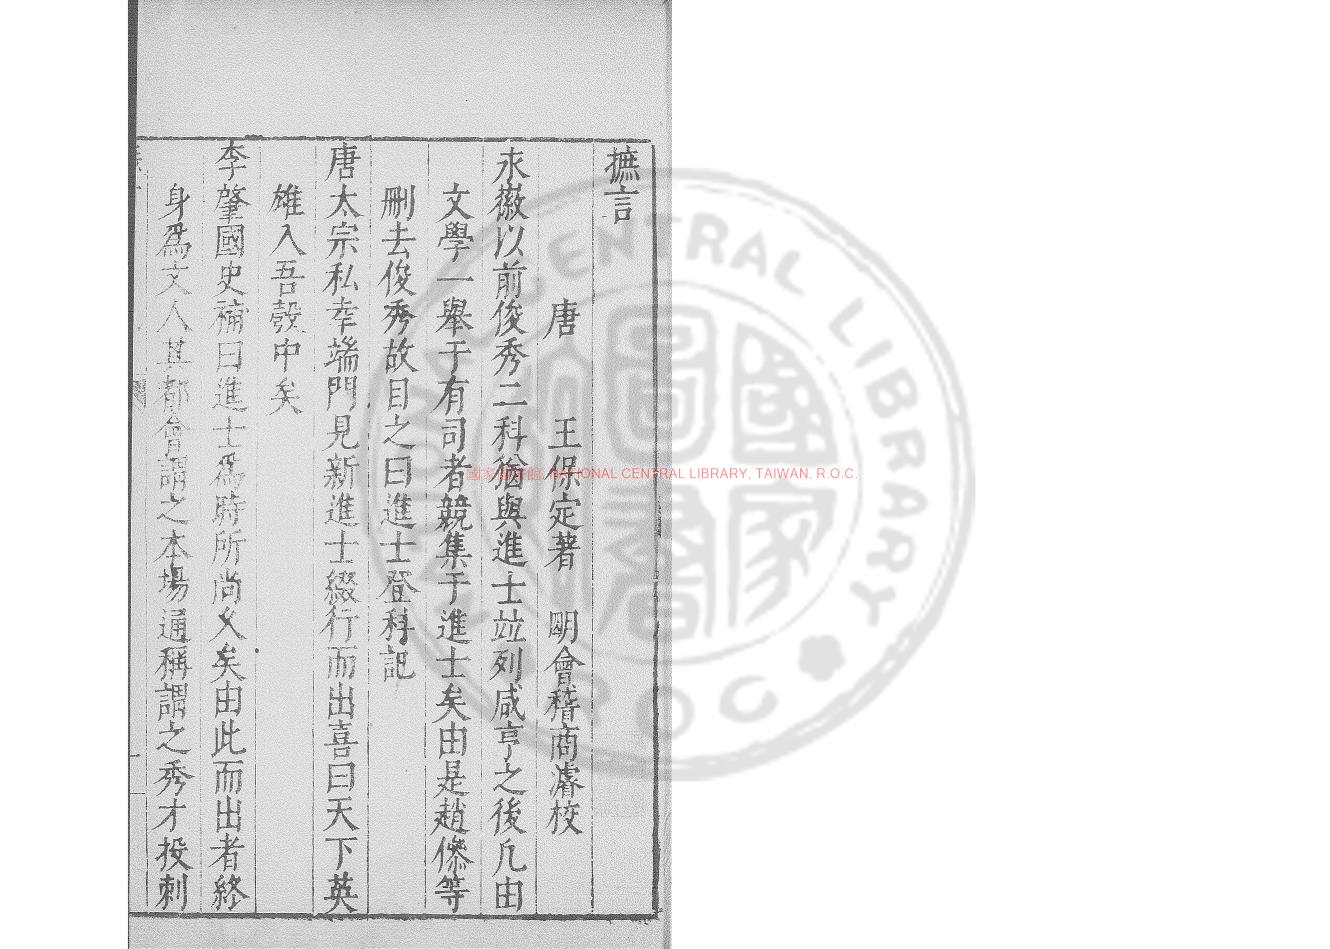 摭言
唐 王保定著 明會稽商濬校
永徽以前俊秀二科猶與進士竝列咸亨之後凡由
文學一舉于有司者競集于進士矣由是趙傪等
刪去俊秀故目之曰進士登科記
唐太宗私幸端門見新進士綴行而出喜曰天下英
雄入吾彀中矣
李肇國史補曰進士爲時所尚久矣由此而出者終
身爲文人其都會謂之本場通稱謂之秀才投刺
國家圖書館, NATIONAL CENTRAL LIBRARY, TAIWAN, R.O.C.
NATIONAL CENTRAL LIBRARY
R.O.C
國家圖書